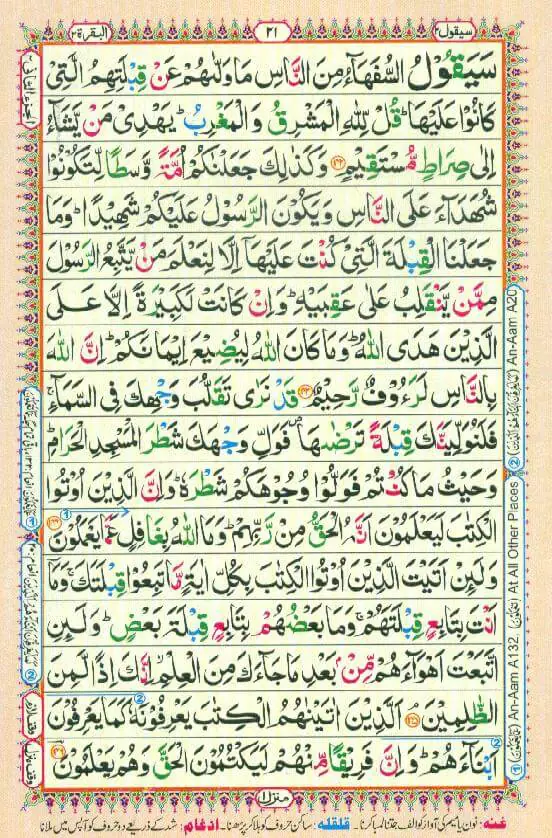 سيقول ٢ ٢١ البقرة ٢
سَيَقُوْلُ السُّفَهَآءُ مِنَ النَّاسِ مَا وَلّٰىهُمْ عَنْ قِبْلَتِهِمُ الَّتِيْ
كَانُوْا عَلَيْهَا ؕ قُلْ لِّلّٰهِ الْمَشْرِقُ وَالْمَغْرِبُ ؕ يَهْدِيْ مَنْ يَّشَآءُ
اِلٰى صِرَاطٍ مُّسْتَقِيْمٍ ﴿۱۴۲﴾ وَكَذٰلِكَ جَعَلْنٰكُمْ اُمَّةً وَّسَطًا لِّتَكُوْنُوْا
شُهَدَآءَ عَلَى النَّاسِ وَيَكُوْنَ الرَّسُوْلُ عَلَيْكُمْ شَهِيْدًا ؕ وَمَا
جَعَلْنَا الْقِبْلَةَ الَّتِيْ كُنْتَ عَلَيْهَآ اِلَّا لِنَعْلَمَ مَنْ يَّتَّبِعُ الرَّسُوْلَ
مِمَّنْ يَّنْقَلِبُ عَلٰى عَقِبَيْهِ ؕ وَاِنْ كَانَتْ لَكَبِيْرَةً اِلَّا عَلَى
الَّذِيْنَ هَدَى اللّٰهُ ؕ وَمَا كَانَ اللّٰهُ لِيُضِيْعَ اِيْمَانَكُمْ ؕ اِنَّ اللّٰهَ
بِالنَّاسِ لَرَءُوْفٌ رَّحِيْمٌ ﴿۱۴۳﴾ قَدْ نَرٰى تَقَلُّبَ وَجْهِكَ فِي السَّمَآءِ ۚ
فَلَنُوَلِّيَنَّكَ قِبْلَةً تَرْضٰىهَا ۪ فَوَلِّ وَجْهَكَ شَطْرَ الْمَسْجِدِ الْحَرَامِ ؕ
وَحَيْثُ مَا كُنْتُمْ فَوَلُّوْا وُجُوْهَكُمْ شَطْرَهٗ ؕ وَاِنَّ الَّذِيْنَ اُوْتُوا
الْكِتٰبَ لَيَعْلَمُوْنَ اَنَّهُ الْحَقُّ مِنْ رَّبِّهِمْ ؕ وَمَا اللّٰهُ بِغَافِلٍ عَمَّا يَعْمَلُوْنَ ﴿۱۴۴﴾
وَلَئِنْ اَتَيْتَ الَّذِيْنَ اُوْتُوا الْكِتٰبَ بِكُلِّ اٰيَةٍ مَّا تَبِعُوْا قِبْلَتَكَ ۚ وَمَآ
اَنْتَ بِتَابِعٍ قِبْلَتَهُمْ ۚ وَمَا بَعْضُهُمْ بِتَابِعٍ قِبْلَةَ بَعْضٍ ؕ وَلَئِنِ
اتَّبَعْتَ اَهْوَآءَهُمْ مِّنْۢ بَعْدِ مَا جَآءَكَ مِنَ الْعِلْمِ ۙ اِنَّكَ اِذًا لَّمِنَ
الظّٰلِمِيْنَ ﴿۱۴۵﴾ اَلَّذِيْنَ اٰتَيْنٰهُمُ الْكِتٰبَ يَعْرِفُوْنَهٗ كَمَا يَعْرِفُوْنَ
اَبْنَآءَهُمْ ؕ وَاِنَّ فَرِيْقًا مِّنْهُمْ لَيَكْتُمُوْنَ الْحَقَّ وَهُمْ يَعْلَمُوْنَ ﴿۱۴۶﴾
منزل ١
غنه: نون یا میم کی آواز کو الف جتنا لمبا کرنا۔ قلقله: ساکن حروف کو ہلا کر پڑھنا۔ ادغام: شد کے ذریعے دو حروف کو آپس میں ملانا
① An-Aam A132, At All Other Places ② An-Aam A20